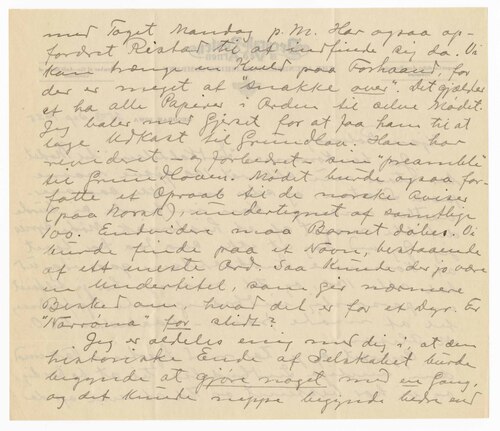 med Toget Mandag p.M. Har ogsaa op-
fordret Ristad til at indfinde sig da. Vi
kan trænge en Kveld paa Forhaand, for
der er meget at "snakke over". Det gjælder
at ha alle Papirer i Orden til selve Mødet.
Jeg baler med Gjerset for at faa ham til at
lage Udkast til Grundlov. Han har
revideret – og forbedret – sin "preamble"
til Grundloven. Mødet burde ogsaa for-
fatte et Opraab til de norske Aviser
(paa Norsk), undertegnet af samtlige
100. Endvidere maa Barnet døbes. Vi
burde finde paa et Navn, bestaaende
af ett eneste Ord. Saa kunde der jo være
en Undertitel, som gir nærmere
Besked om, hvad det er for et Dyr. Er
"Norrøna" for slidt?
Jeg er aldeles enig med dig i, at den
historiske Ende af Selskabet burde
begynde at gjøre noget med en Gang,
og det kunde neppe begynde bedre end